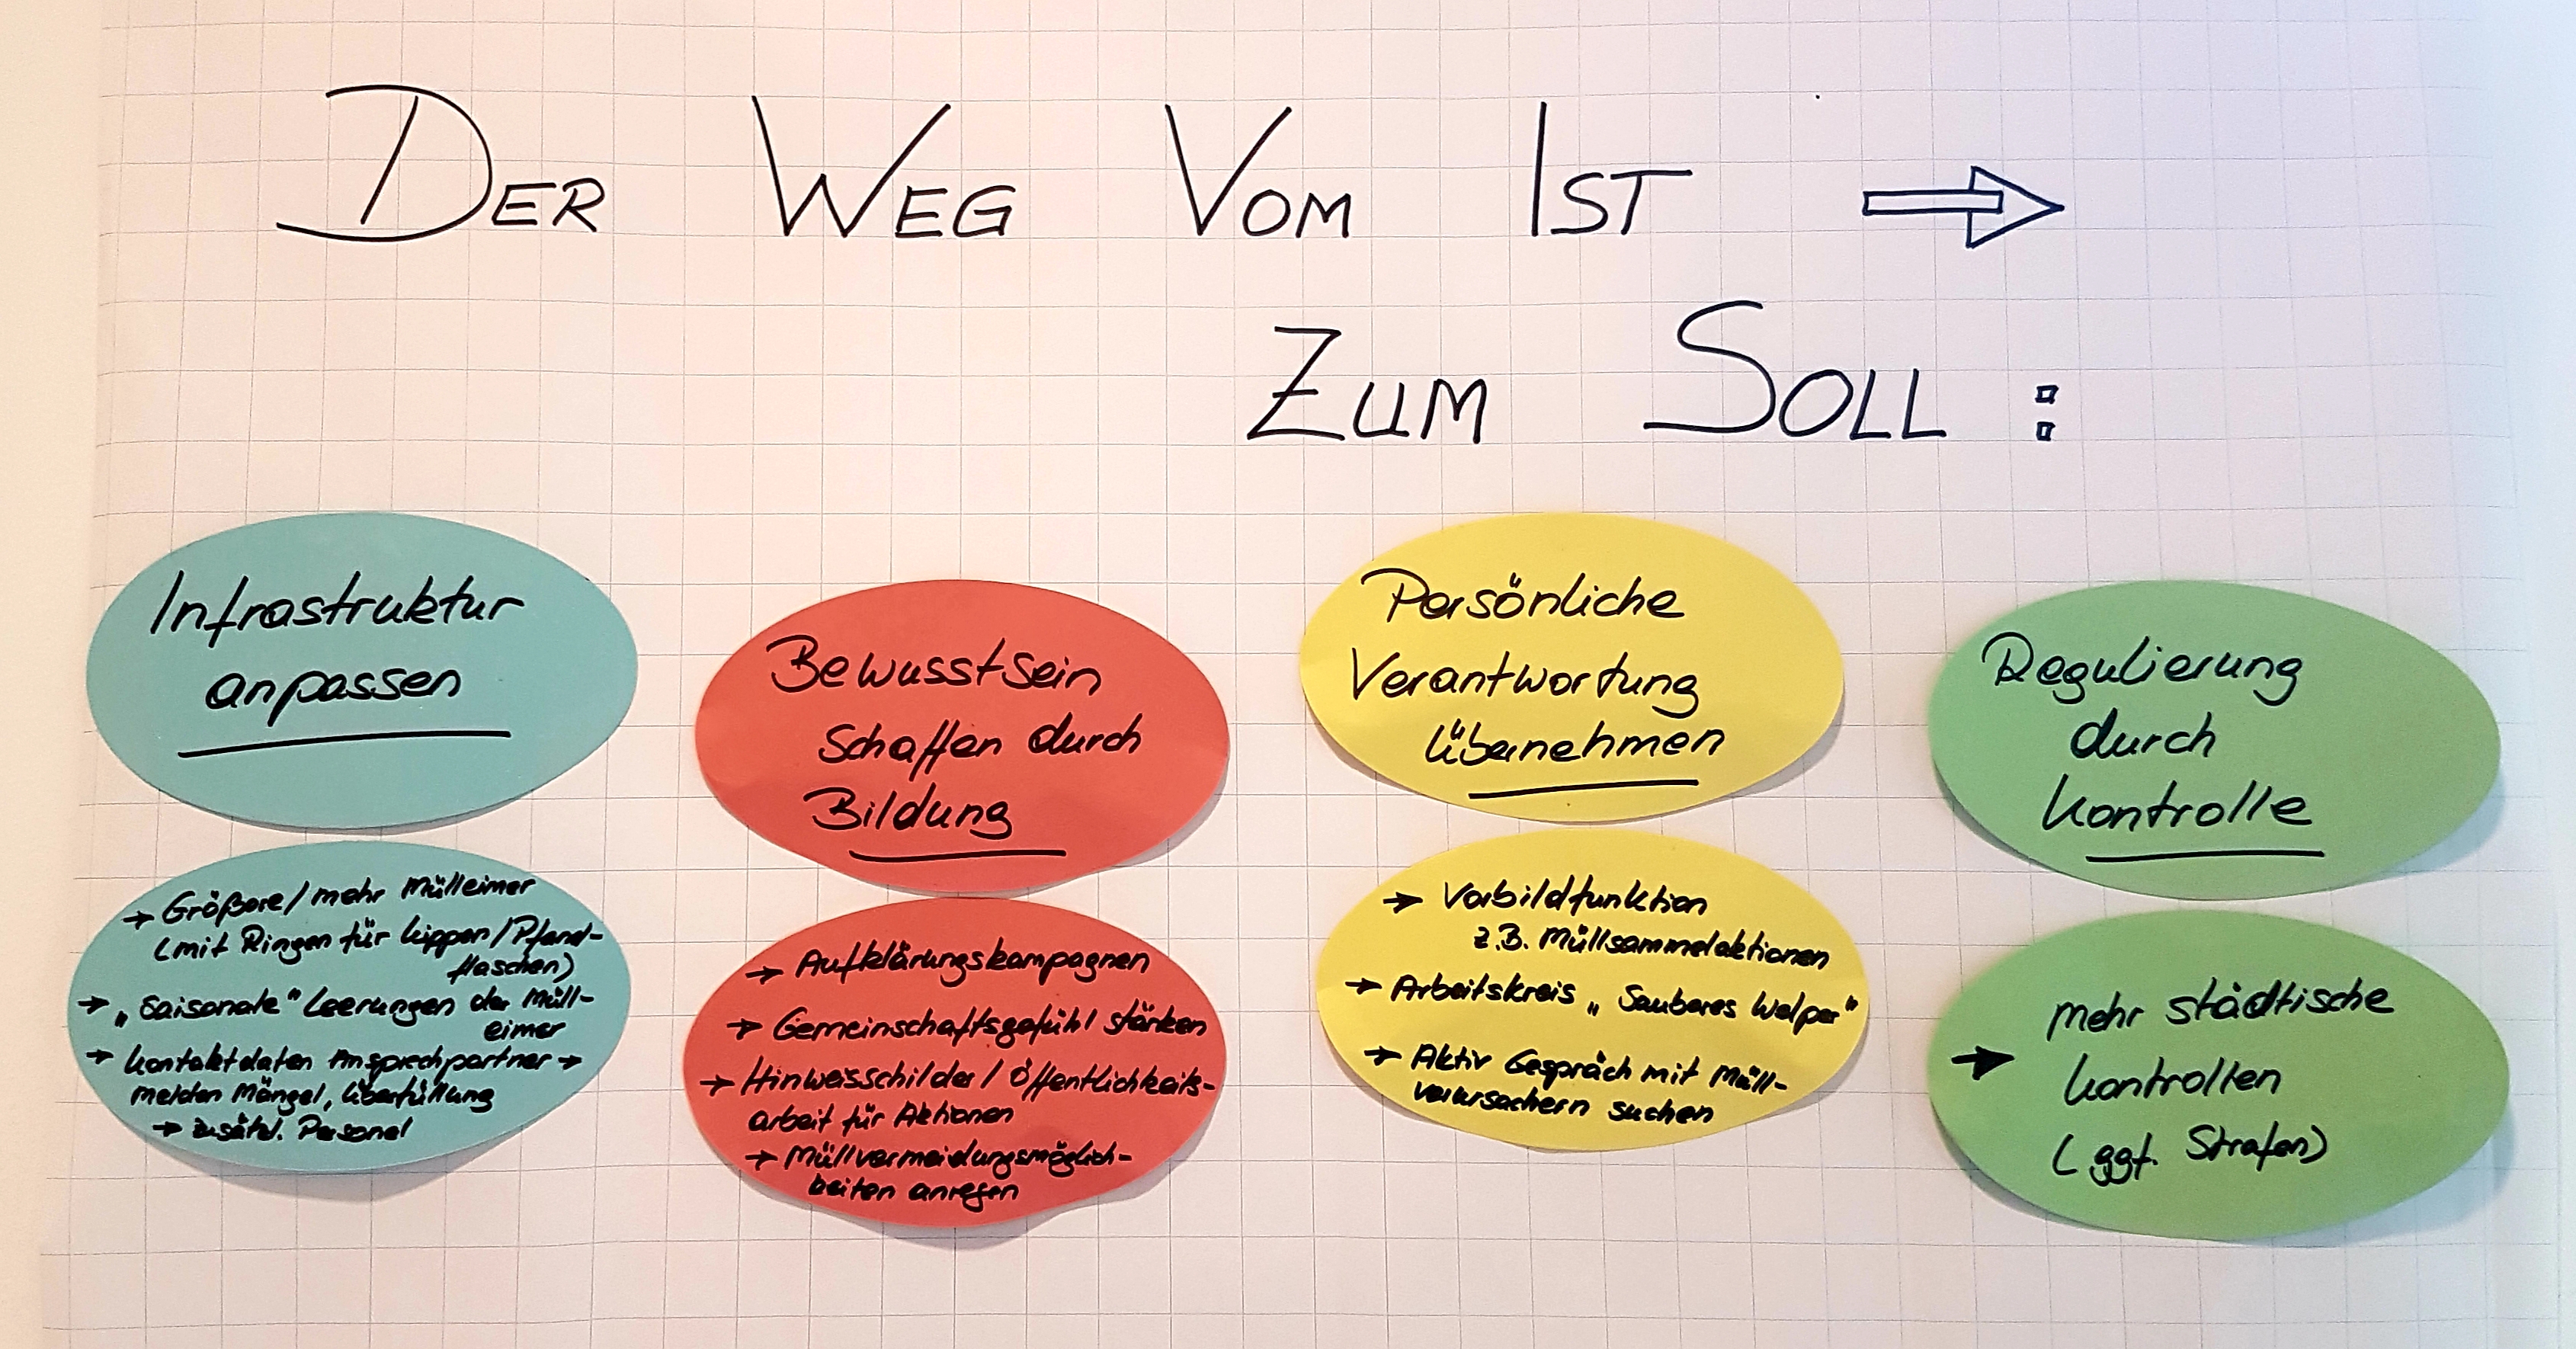 DER WEG VOM IST
ZUM SOLL :
Infrastruktur
anpassen
→ Größere / mehr Mülleimer
(mit Ringen für Kippen / Pfand-
flaschen)
→ „Saisonale" Leerungen der Müll-
eimer
→ Kontaktdaten Ansprechpartner →
melden Mängel, Überfüllung
→ zusätzl. Personal
Bewusstsein
schaffen durch
Bildung
→ Aufklärungskampagnen
→ Gemeinschaftsgefühl stärken
→ Hinweisschilder / Öffentlichkeits-
arbeit für Aktionen
→ Müllvermeidungsmöglich-
keiten anregen
Persönliche
Verantwortung
übernehmen
→ Vorbildfunktion
z.B. Müllsammelaktionen
→ Arbeitskreis „Sauberes Welper"
→ Aktiv Gespräch mit Müll-
verursachern suchen
Regulierung
durch
Kontrolle
→ mehr städtische
Kontrollen
(ggf. Strafen)